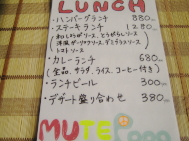 LUNCH
・ハンバーグランチ 880
・ステーキランチ 1280
(和しょうがソース、とうがらしソース
洋風ガーリックソース、デミグラスソース
トマトソース
・カレーランチ 680
(全品、サラダ、ライス、コーヒー付き)
・ランチビール 300
・デザート盛り合わせ 380
MUTE